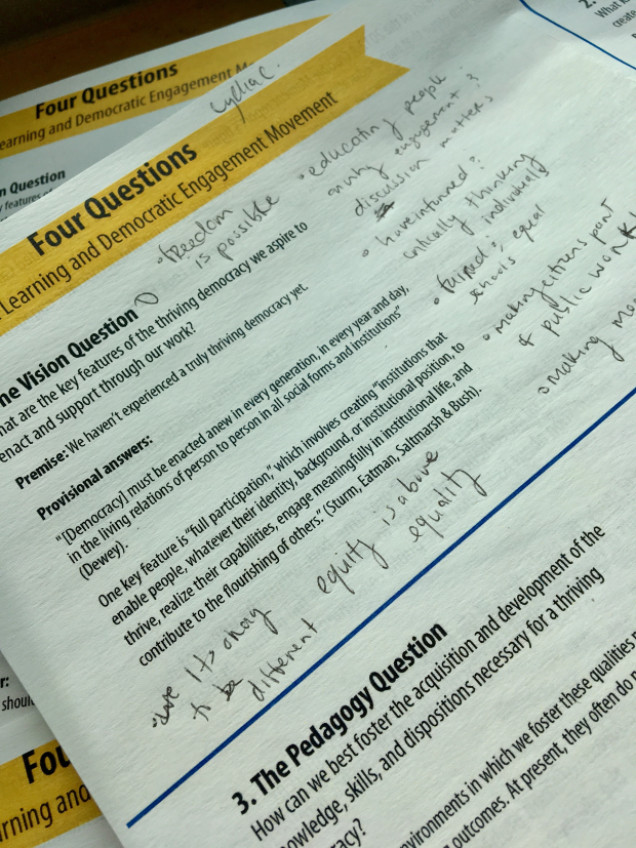 Four Questions
earning and Democratic Engagement M
n Question
Lydia C.
Four Questions
Learning and Democratic Engagement Movement
• freedom
is possible
• educating people
engagement &
discussion matters
• have informed &
critically thinking
individuals
schools
equal
• making citizens part
of public work
• making me
ne Vision Question
hat are the key features of the thriving democracy we aspire to
enact and support through our work?
Premise: We haven't experienced a truly thriving democracy yet.
Provisional answers:
"[Democracy] must be enacted anew in every generation, in every year and day,
in the living relations of person to person in all social forms and institutions"
(Dewey).
One key feature is "full participation," which involves creating "institutions that
enable people, whatever their identity, background, or institutional position, to
thrive, realize their capabilities, engage meaningfully in institutional life, and
contribute to the flourishing of others." (Sturm, Eatman, Saltmarsh & Bush).
its okay
to be
different
equity is above
equality
3. The Pedagogy Question
How can we best foster the acquisition and development of the
nowledge, skills, and dispositions necessary for a thriving
racy?
nvironments in which we foster these qualities
outcomes. At present, they often do n
r:
shoul
Fou
rning and
2.
What
create